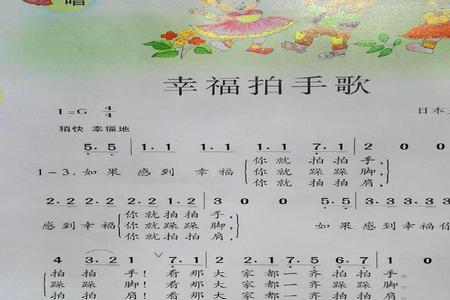 唱
幸福拍手歌
1=G 4/4
日本
稍快 幸福地
5. 5. 1. 1 1. 1 1. 1 7. 1 2 0 0
你就拍拍手，
1-3.如果感到幸福 你就跺跺脚，
你就拍拍肩，
2. 2 2. 2 2. 2 1. 2 3 0 0 5. 5 3. 3 3. 3 3. 3
你就拍拍手，
感到幸福 你就跺跺脚， 如果感到幸福
你就拍拍肩，
4 3. 2 1 7. 1 2. 2 2. 1 7. 5 6. 7 1 0
拍拍手！看那大家都一齐拍拍手。
跺跺脚！看那大家都一齐跺跺脚。
拍拍肩！看那大家都一齐拍拍肩。